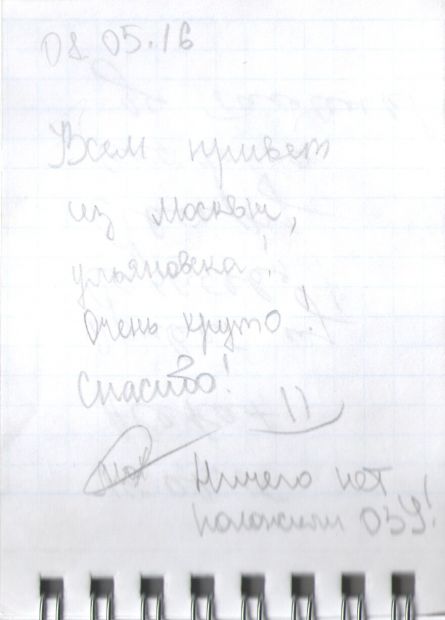 08.05.16
Всем привет
из Москвы,
ульяновска!
Очень круто!
Спасибо!
Ничего нет
положили ОЗУ!